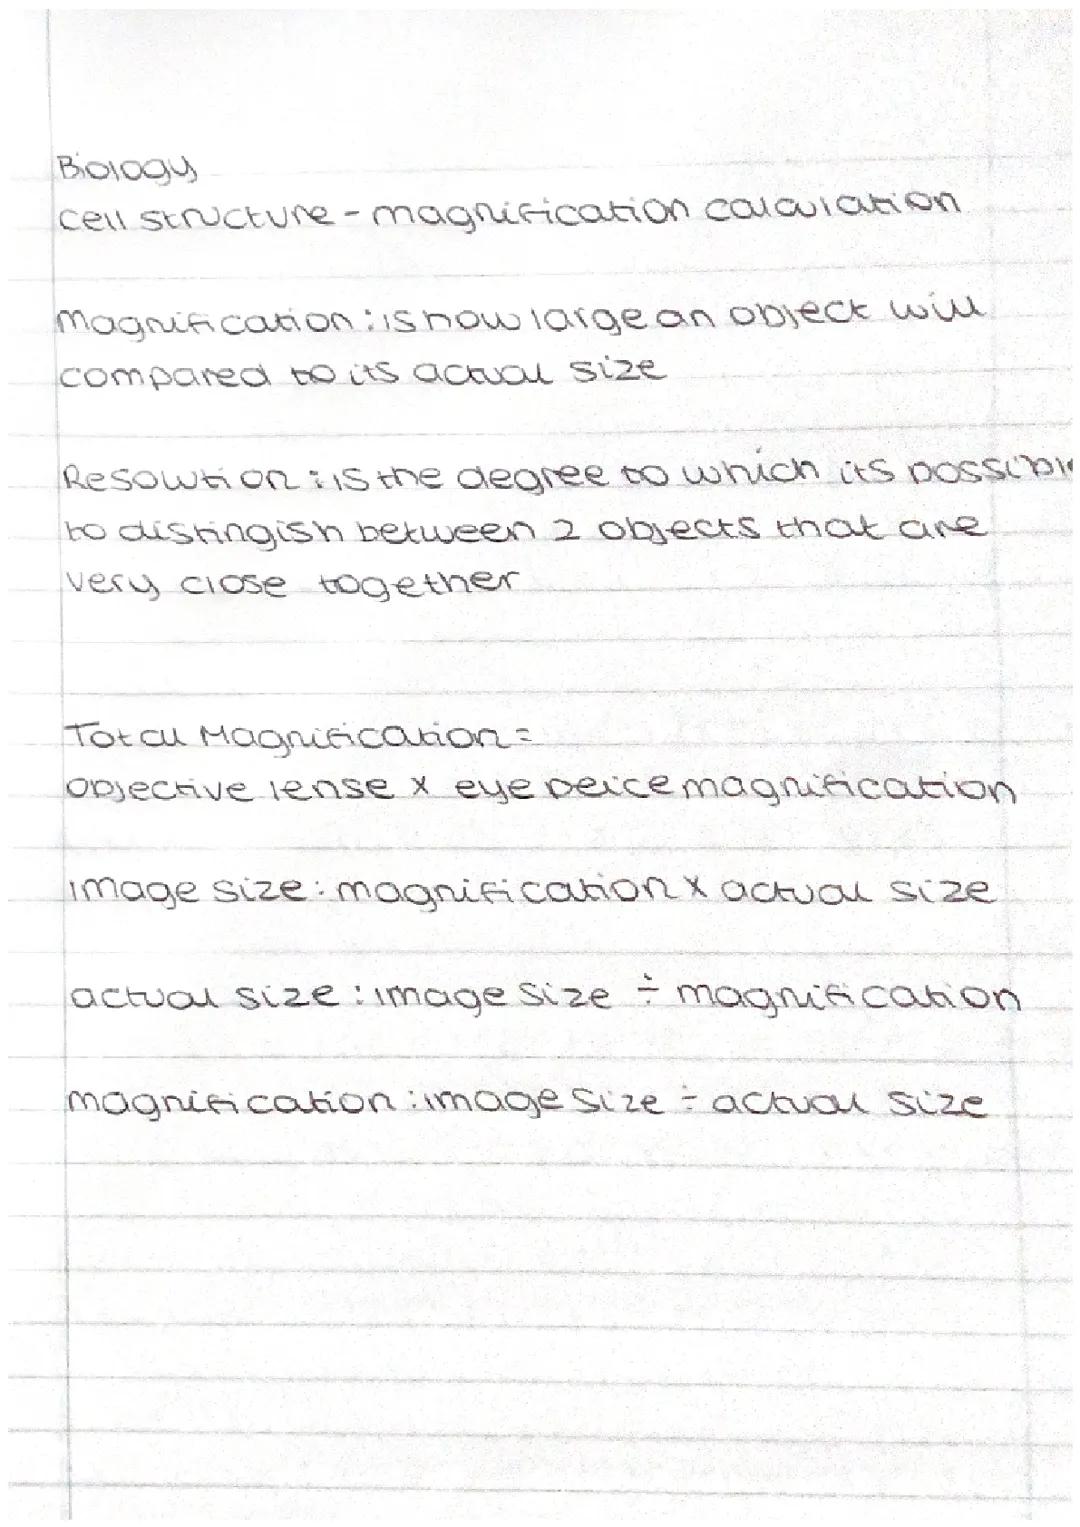 Biology
cell structure - magnification calculation
Magnification : is how large an object will
compared to its actual size
Resolution : is the degree to which its possible
to distingish between 2 objects that are
very close together
Total Magnification =
objective lense x eye peice magnification
image size : magnification x actual size
actual size : image size ÷ magnification
magnification : image size ÷ actual size